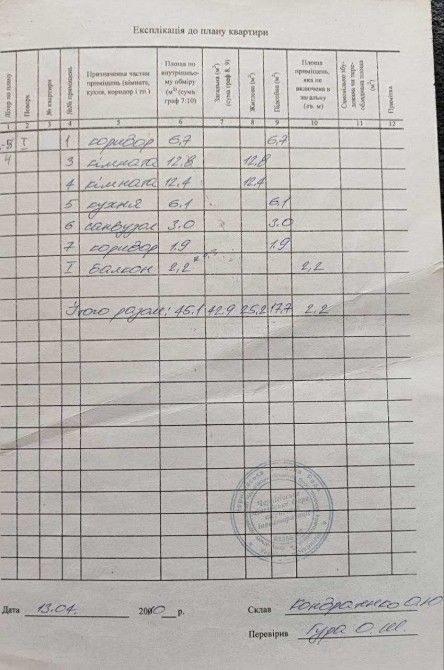 Експлікація до плану квартири
Літер за планом
Поверх
№ квартири
№№ приміщень
Призначення частин приміщень (кімната, кухня, коридор і т.)
Площа по внутрішньому обміру (м²) (сума граф 7;10)
Загальна (м²) (сума граф 8, 9)
Житлова (м²)
Підсобна (м²)
Площа приміщень, яка не включена в загальну (кв. м)
Самовільно збудована чи переобладнана площа (м²)
Примітка
1 2 3 4 5 6 7 8 9 10 11 12
I 1 коридор 6,7 6,7
4 3 кімната 12,8 12,8
4 кімната 12,4 12,4
5 кухня 6,1 6,1
6 санвузол 3,0 3,0
7 коридор 1,9 1,9
I балкон 2,2 2,2
Усього разом: 45,1 42,9 25,2 17,7 2,2
Дата 13.04. 2010 р.
Склав Кондратенко О.Ю
Перевірив Гура О.Ш.